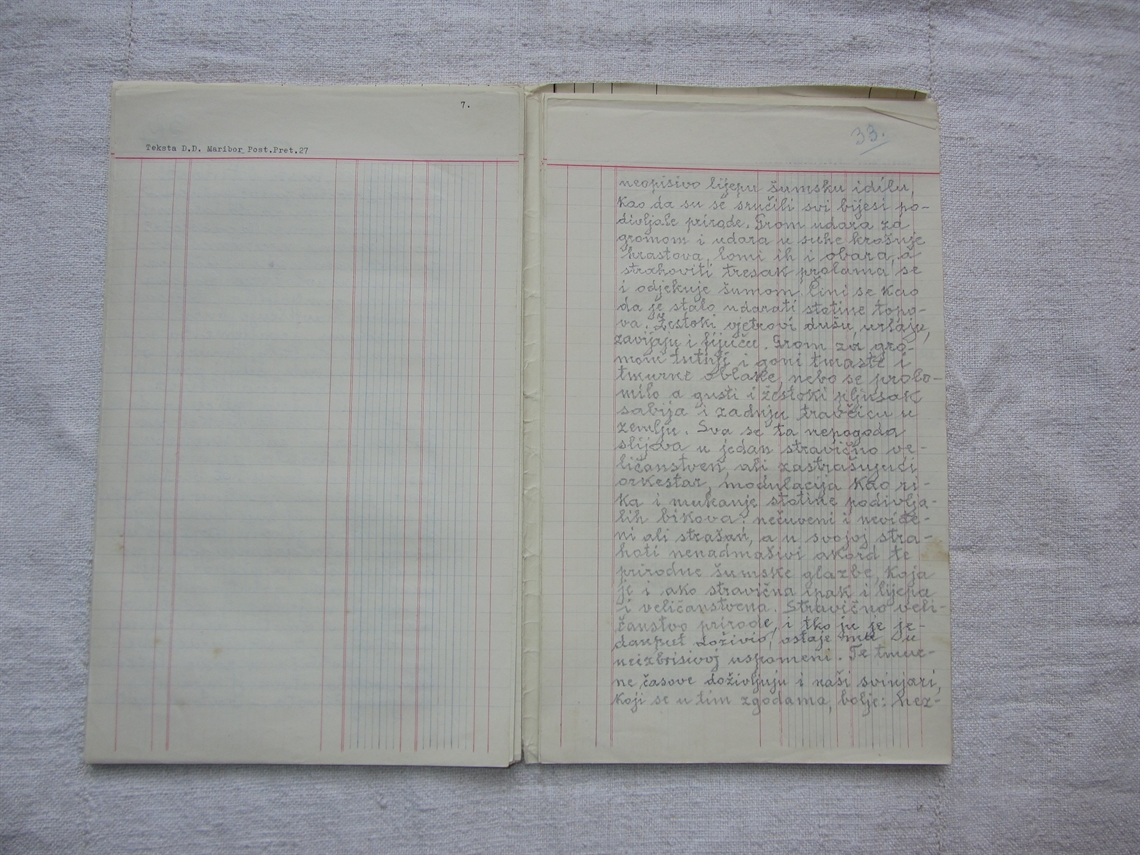 7.
Teksta D.D. Maribor Post.Pret.27
33.
neopisivo lijepu šumsku idilu,
kao da su se sručili svi bijesi po-
divljale prirode. Grom udara za
gromom i udara u suhe krošnje
hrastova, lomi ih i obara, a
strahoviti tresak prolama se
i odjekuje šumom. Čini se kao
da je stalo udarati stotine topo-
va. Žestoki vjetrovi dušu urlaju,
zavijaju i fijuču. Grom za gro-
mom tutnji i goni tmaste i
tmurne oblake, nebo se prolo-
milo a gusti i žestoki pljusak
sabija i zadnju travčicu u
zemlju. Sva se ta nepogoda
slijeva u jedan stravično ve-
ličanstven, ali zastrašujući
orkestar, modulacija kao ri-
ka i mukanje stotine podivlja-
lih bikova: nečuveni i neviđe-
ni ali strašan, a u svojoj stra-
hoti nenadmašivi akord te
prirodne šumske glazbe, koja
je i ako stravična ipak i lijepa
i veličanstvena. Stravično veli-
čanstvo prirode, i tko ju je je-
danput doživio, ostaje mu u
neizbrisivoj uspomeni. Te tmur-
ne časove doživljuju i naši svinjari,
koji se u tim zgodama, bolje: nez-